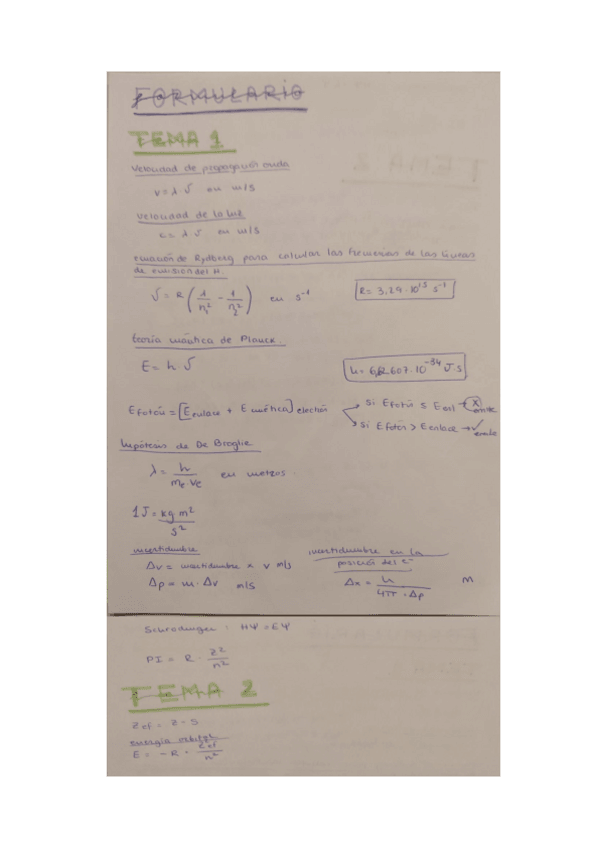 FORMULARIO
TEMA 1
Velocidad de propagación onda
v = λ √ en m/s
Velocidad de la luz
c = λ · √ en m/s
ecuación de Rydberg para calcular las frecuencias de las líneas
de emisión del H.
√ = R (1/n₁² - 1/n₂²) en s⁻¹
R = 3,29 · 10¹⁵ s⁻¹
teoría cuántica de Planck.
E = h · √
h = 6,607 · 10⁻³⁴ J·S
E fotón = [E enlace + E cinética] electrón
Si E fotón ≤ E enl → X emite
Si E fotón > E enlace → ✓ emite
hipótesis de De Broglie
λ = h / me ve en metros.
1 J = kg m² / s²
incertidumbre
Δv = incertidumbre x v m/s
Δp = m · Δv m/s
incertidumbre en la
posición del e⁻
Δx = h / 4π · Δp m
Schrodinger : HΨ = EΨ
PI = R · z² / n²
TEMA 2
Zef = Z - S
energía orbital
E = - R · Zef / n²